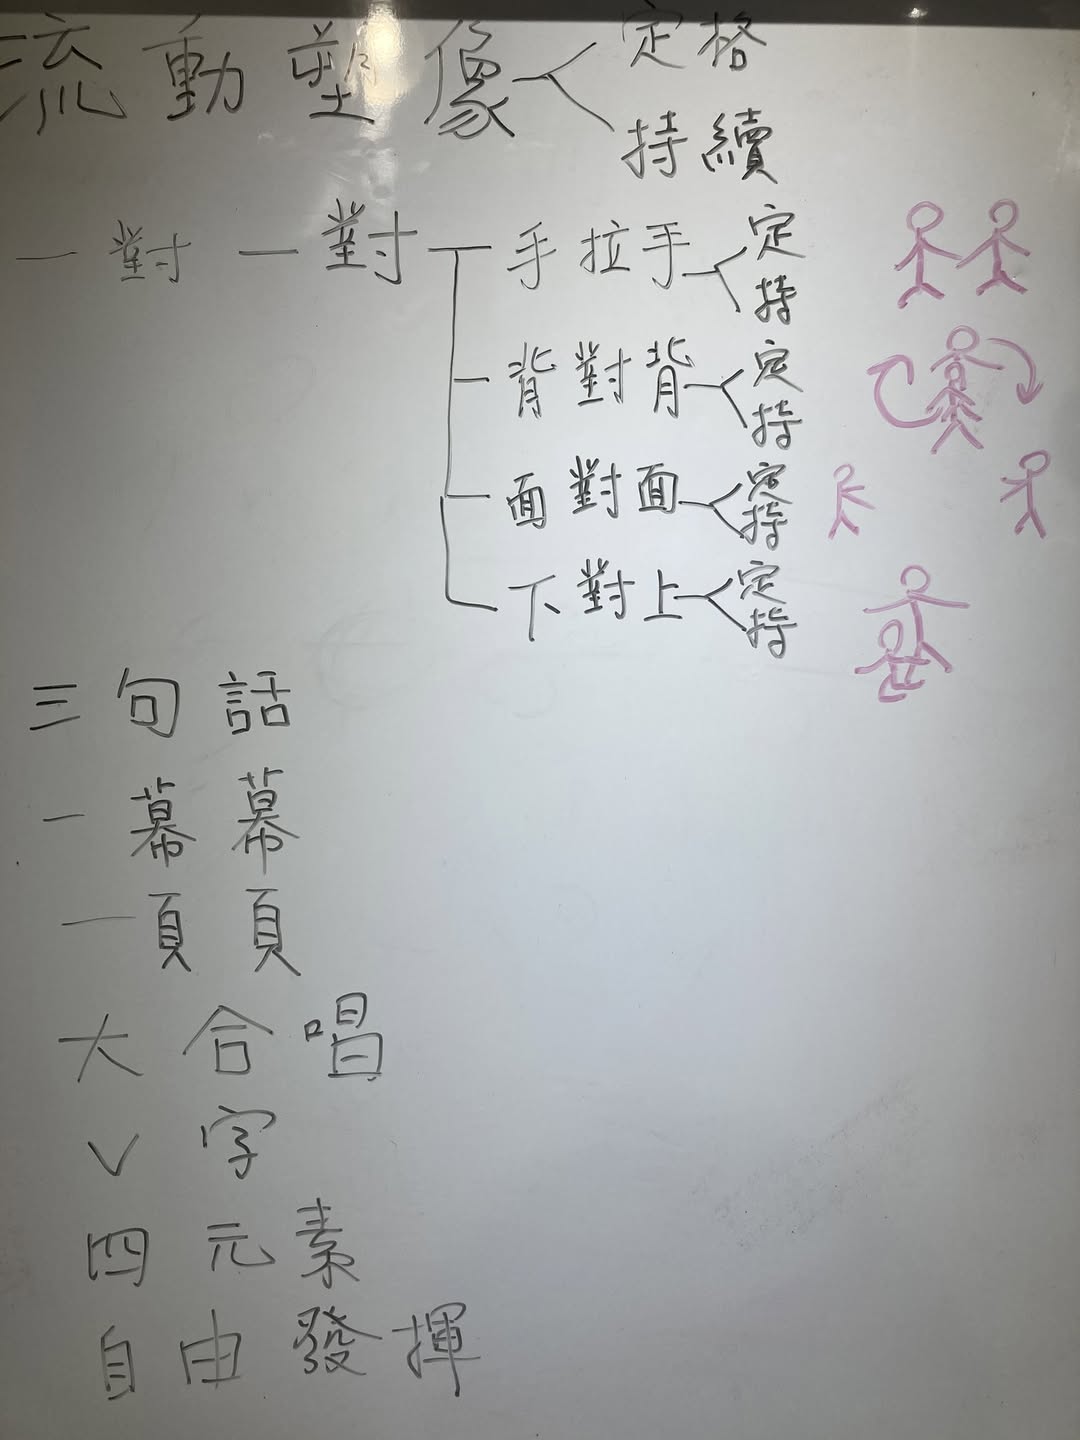 流動塑像 定格
持續
一對一對 手拉手 定
持
背對背 定
持
面對面 定
持
下對上 定
持
三句話
一幕幕
一頁頁
大合唱
V字
四元素
自由發揮